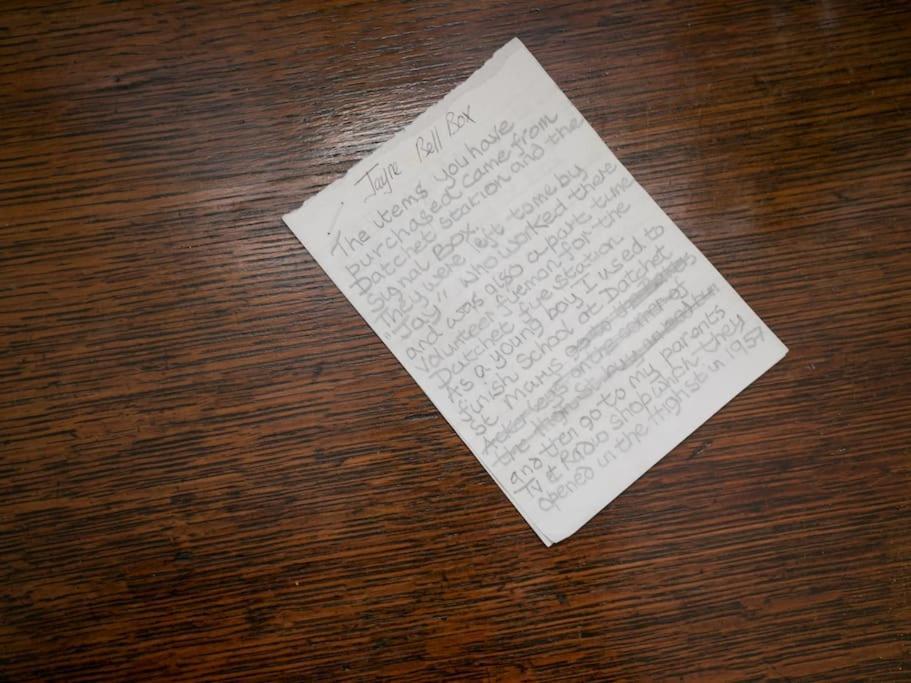 Jayne Bell Box
The items you have
purchased came from
Datchet station and the
signal Box.
They were left to me by
"Jay" who worked there
and was also a part time
Volunteer fireman for the
Datchet fire station.
As a young boy I used to
finish School at Datchet
St Marys
the Highst
and then go to my parents
TV & Radio shop which they
opened in the Highst in 1957